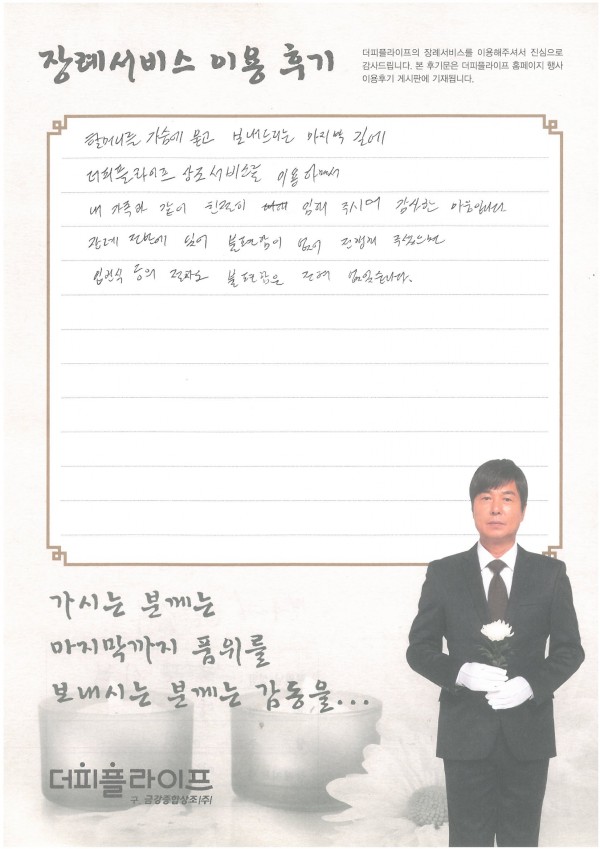 장례서비스 이용 후기
더피플라이프의 장례서비스를 이용해주셔서 진심으로
감사드립니다. 본 후기문은 더피플라이프 홈페이지 행사
이용후기 게시판에 기재됩니다.
할머니를 가슴에 묻고 보내드리는 마지막 길에
더피플라이프 상조서비스를 이용하면서
내 가족과 같이 친절히 임해 주시어 감사한 마음입니다
장례 전반에 있어 불편함이 없이 진행해 주셨으며
입관식 등의 절차도 불편함은 전혀 없었습니다.
가시는 분께는
마지막까지 품위를
보내시는 분께는 감동을...
더피플라이프
구. 금강종합상조(주)